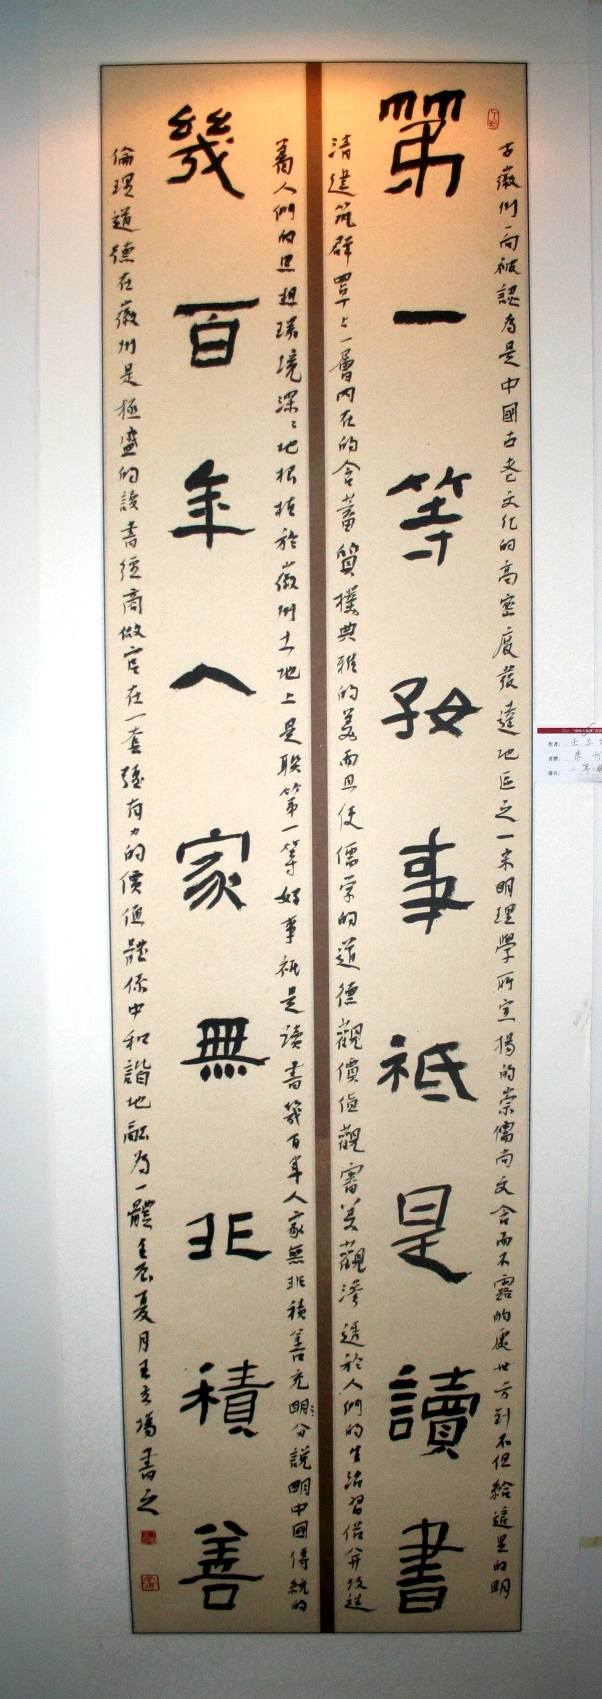 第一等好事祗是讀書
幾百年人家無非積善
古徽州一向被認為是中國古老文化的高密度發達地區之一宋明理學所宣揚的崇儒尚文含而不露的處世方針不但給這里的明
清建筑群罩上一層內在的含蓄質樸典雅的美而且使儒家的道德觀價值觀審美觀滲透於人們的生活習俗并改造
着人們的思想環境深深地根植於徽州土地上是联第一等好事祗是读書幾百年人家無非積善充分說明中國傳統的
倫理道德在徽州是極盛的讀書經商做官在一套强有力的價值體係中和諧地融為一體壬辰夏月王立揚書之